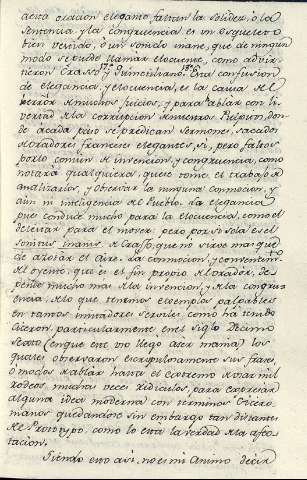 aena oracion elegante, faltan la solidez, o la
sentencia y la congruencia es un esqueleto
bien vestido, ô un sonido inane, que de ningun
modo se puede llamar eloquente, como advir-
tieron Crasso y Quintiliano. Esta confusion
de elegancia, y eloquencia, es la causa del
error de muchos juicios, y para hablar con li-
vertad de la corrupcion de nuestros Pulpitos, don-
de à cada paso se predican Sermones, sacados
de Oradores franceses elegantes, si, pero faltos
por lo comun de invencion, y congruencia, como
notará qualquiera, que se tome el trabajo de
analizarlos, y observar la ninguna conmocion, y
aun ni inteligencia del Pueblo. La elegancia
pues conduce mucho para la eloquencia, como el
deleitar para el mover, pero por si sola es el
sonitus inanis de Crasso, que no sirve mas que
de azotar el aire. La conmocion, y convencim.
del oyente, que es el fin propio del Orador, de-
pende mucho mas de la invencion, y de la congru-
encia. De lo que tenemos exemplos palpables
en tantos imitadores serviles como ha tenido
Ciceron, particularmente en el siglo Decimo
Sexto (en que esto llegó a ser mania) los
quales observaron escrupulosamente sus frases,
ô modos de hablar hasta el extremo de usar mil
rodeos, muchas veces ridiculos, para expresar
alguna idea moderna con terminos Cicero-
nianos quedandose sin embargo tan distantes
del Prototypo, como lo está la verdad de la afec-
tacion.
Siendo esto asi, no es mi animo decir